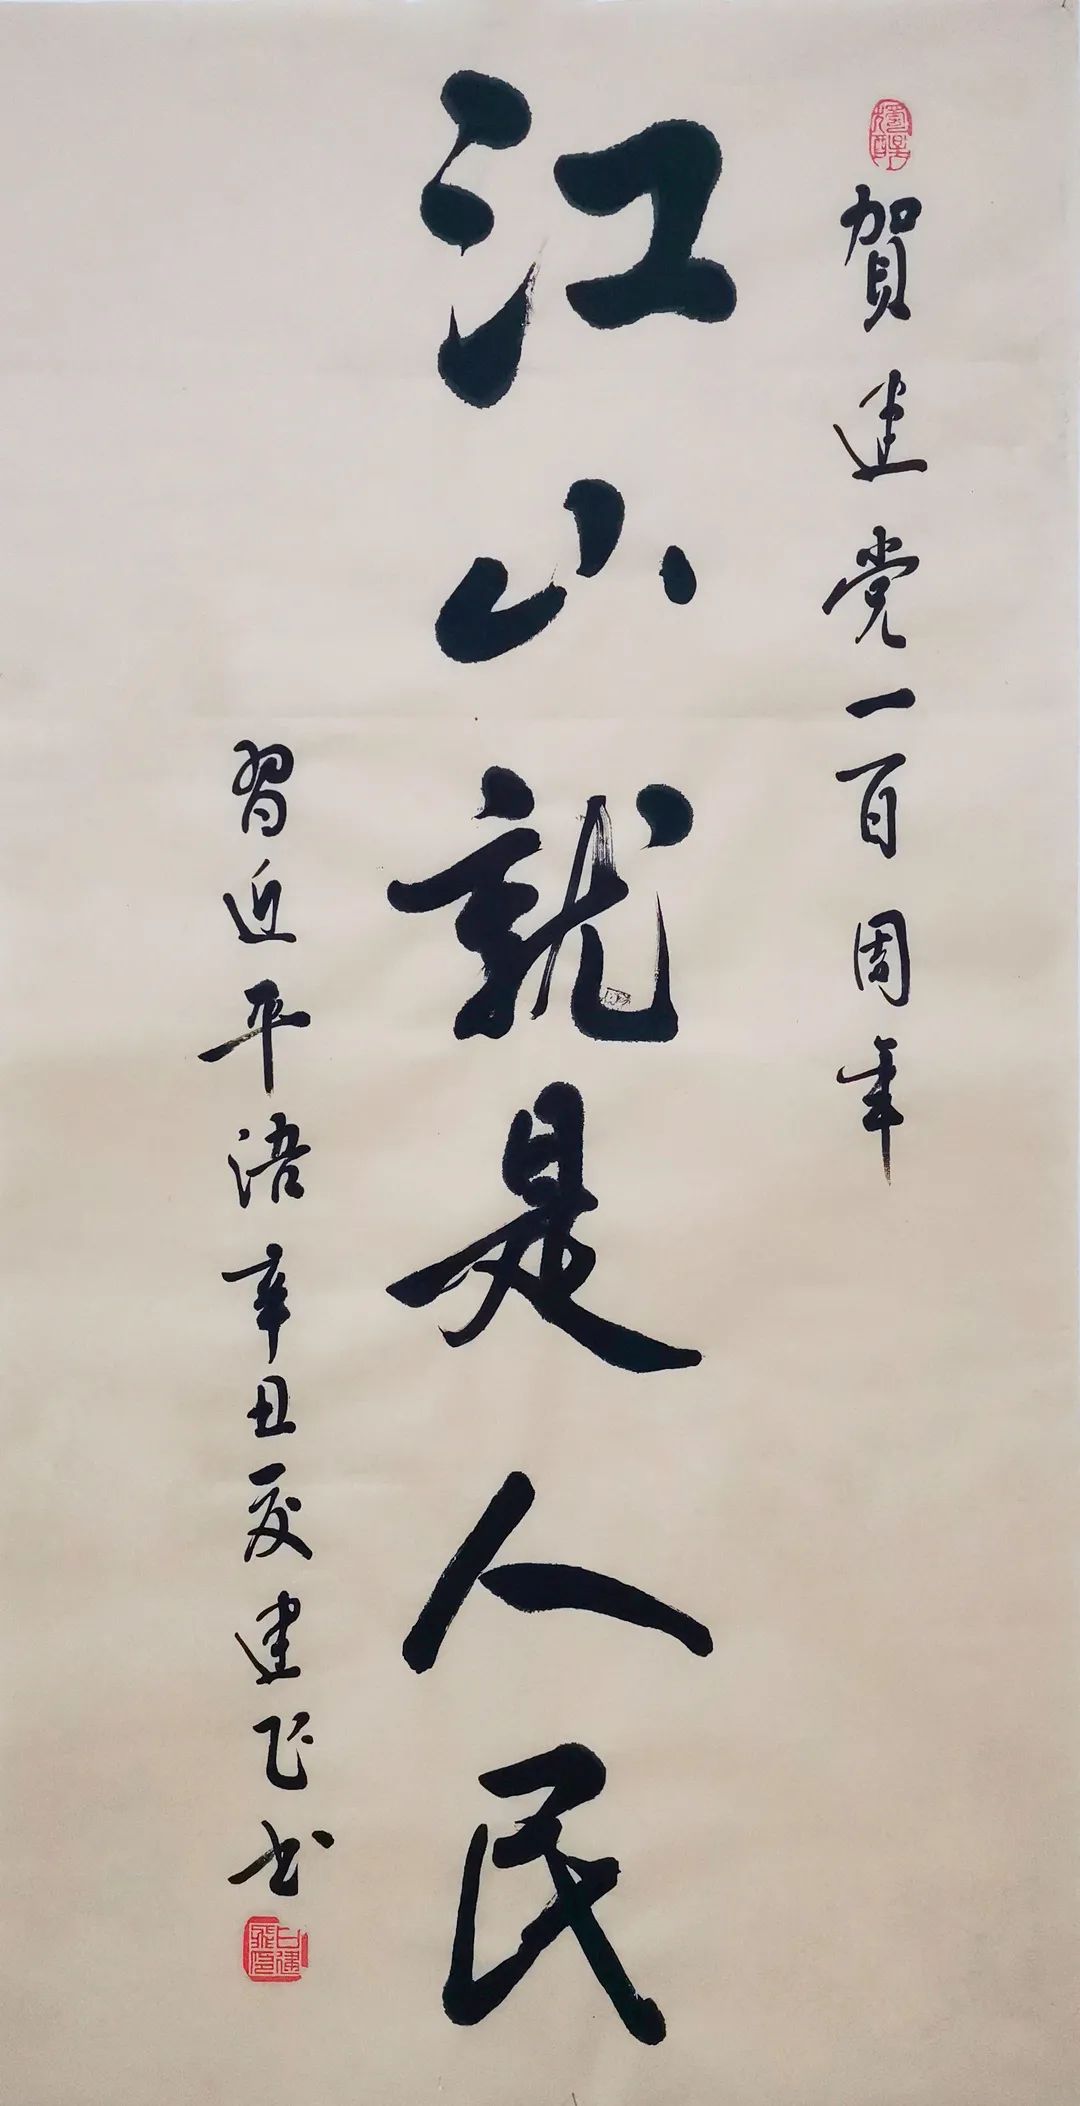 賀建党一百周年
江山就是人民
習近平语辛丑夏建飞书